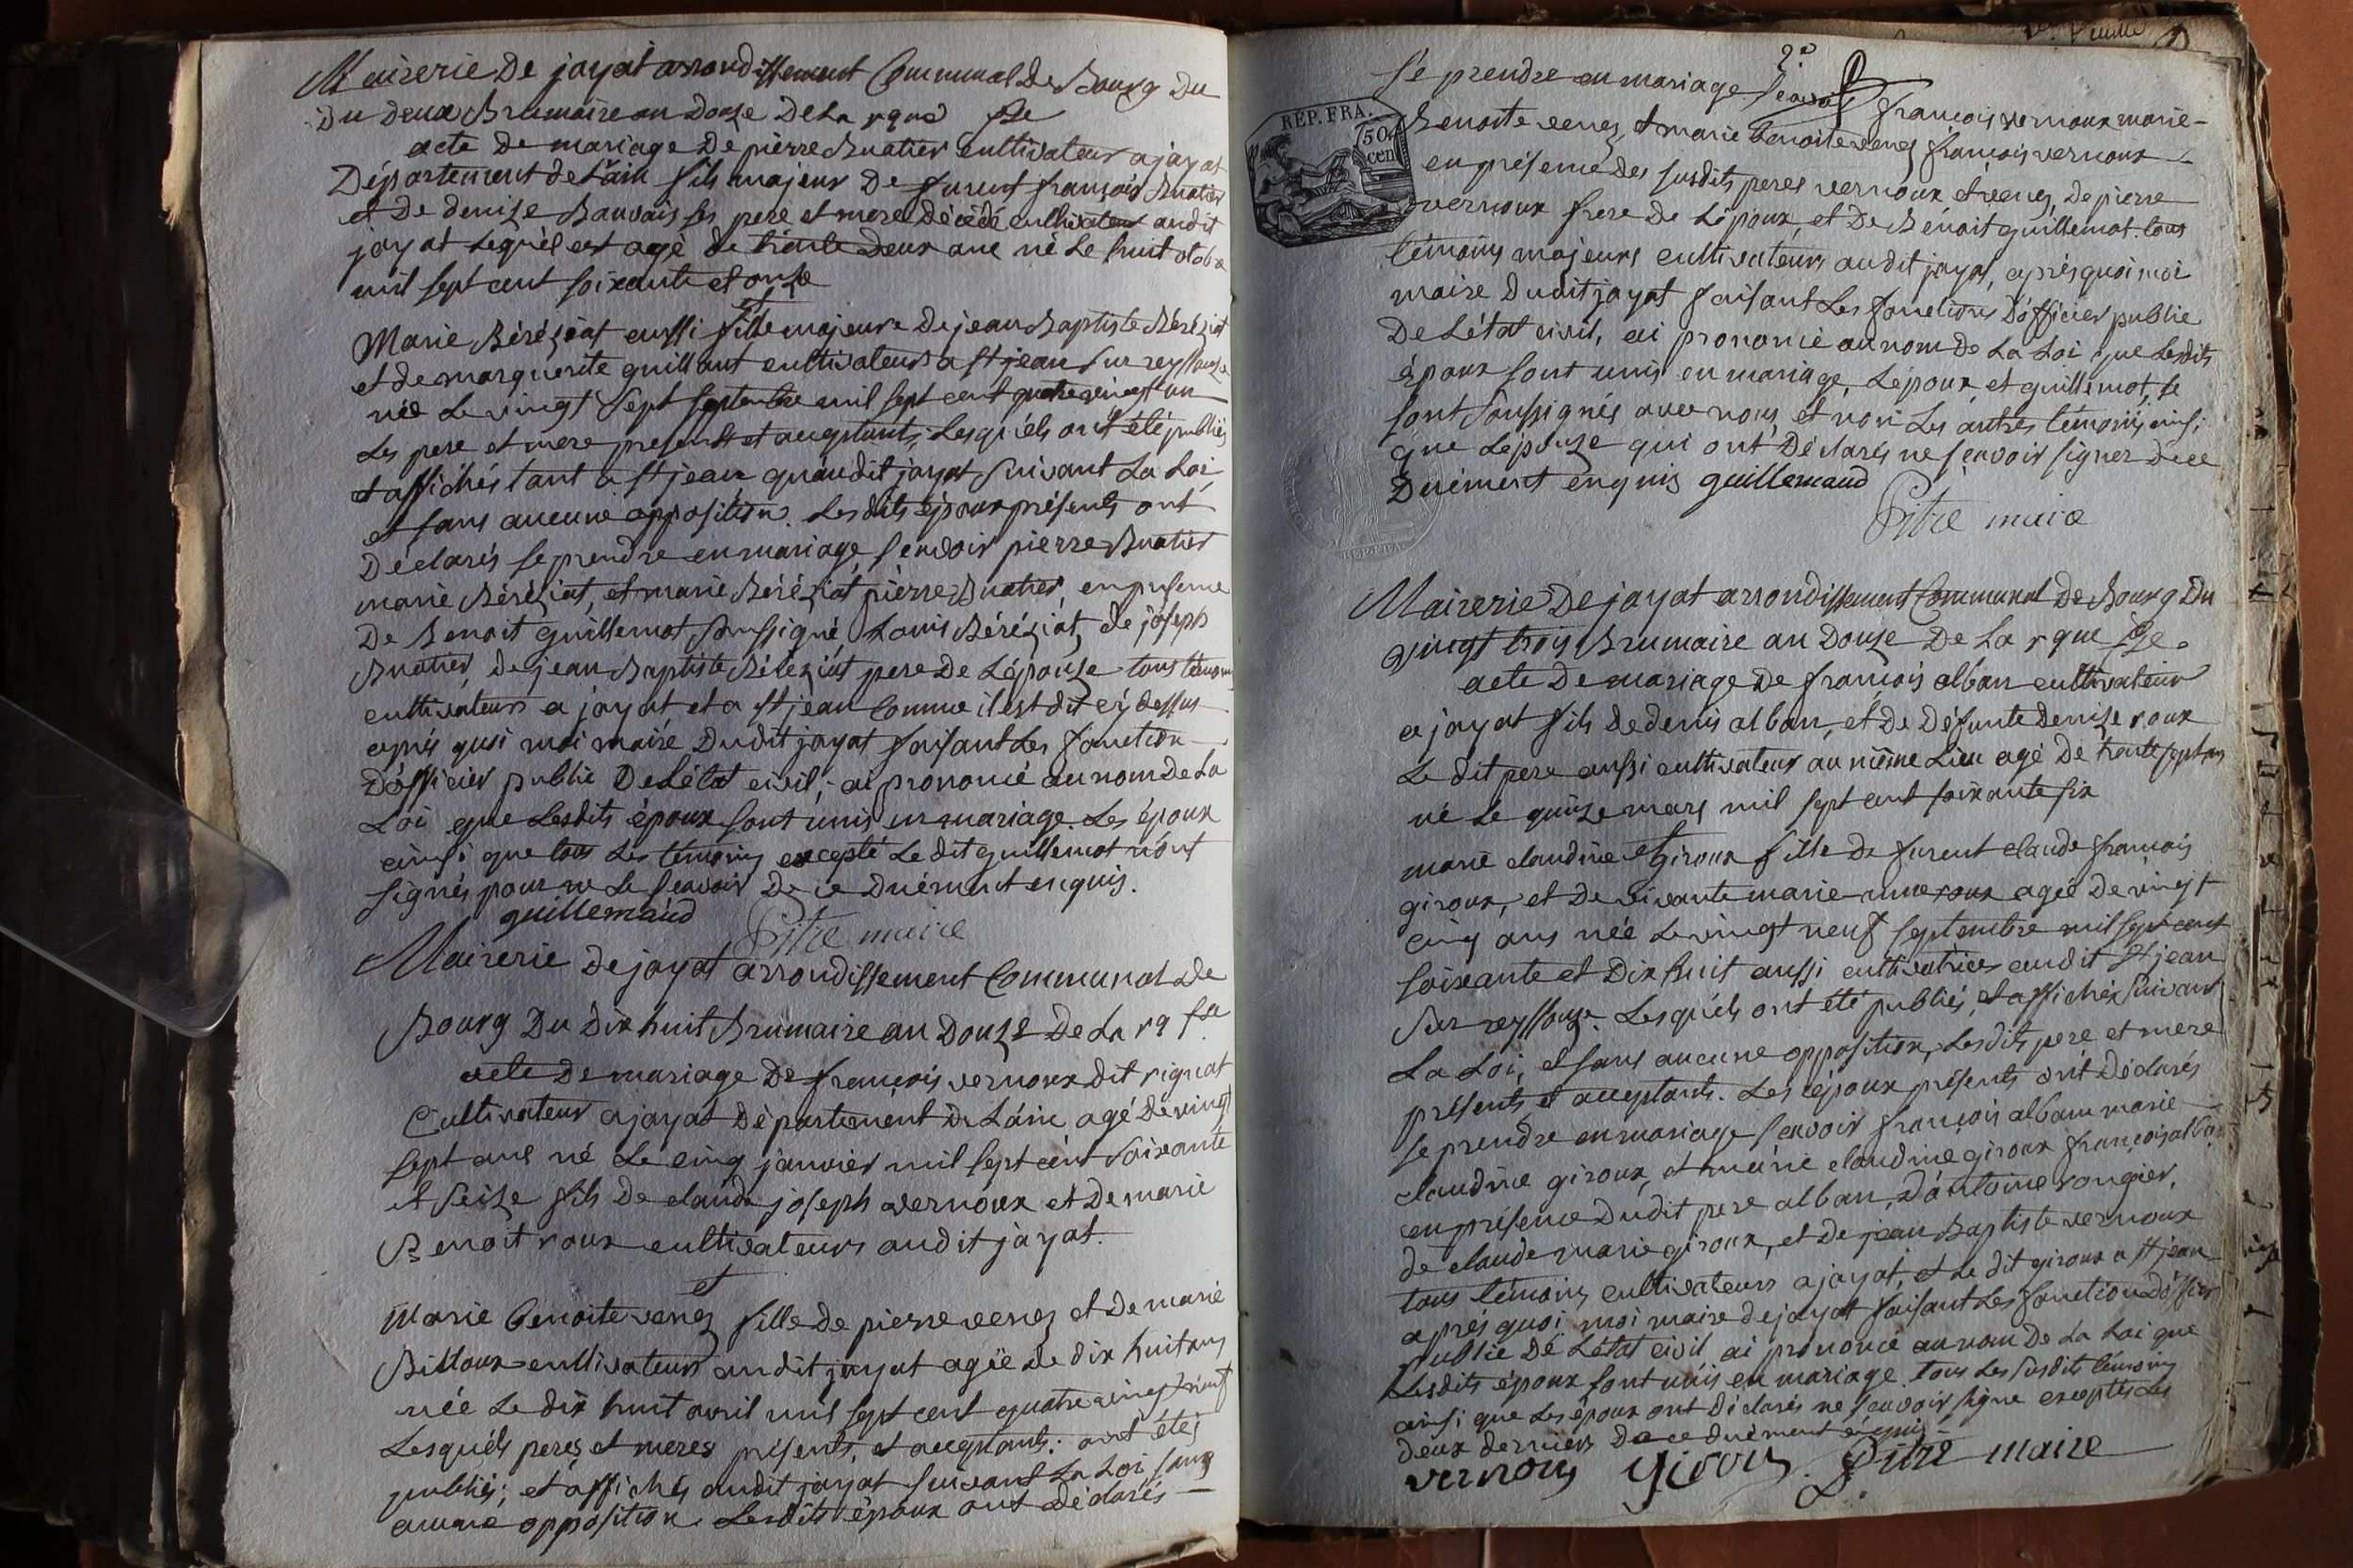 Mairerie De jayat arrondissement Communal De Bourg Du
Du deux Brumaire an Douze De La rque fse
acte De mariage De pierre Buatier cultivateur a jayat
Département de L'ain fils majeur De furent françois Buatier
et De denize Bauvais ses pere et mere décédé cultivateur audit
jayat Lequel est agé de trente Deux ans né Le huit otobre
mil sept cent soixante et onze
et
Marie Béréziat aussi fille majeure De jean Baptiste Béréziat
et de marguerite guillant cultivateurs a st jean sur reyssouze
née Le vingt sept septembre mil sept cent quatre vingt un
Les pere et mere presents et acceptants; Lesquéls ont été publiés
et affichés tant a st jean qu'audit jayat suivant La Loi,
et sans aucune opposition. Lesdits époux présents ont
Déclarés se prendre en mariage, scavoir pierre Buatier
marie Béréziat, et marie Béréziat pierre Buatier, en presence
De Benoit guillemot soussigné, Louis Béréziat, de joseph
Buatier, de jean Baptiste Béréziat pere De L'épouze tous témoins
cultivateurs a jayat et a st jean Comme il est dit cy dessus
aprés quoi moi maire Dudit jayat faisant Les fonction
D'officier public De L'état civil, ai prononcé au nom De La
Loi que Lesdits époux sont unis en mariage. Les époux
ainsi que tous Les témoins excepté Le dit guillemot n'ont
signés pour ne Le scavoir De ce Duément enquis.
guillemaud Pitre maire
Mairerie De jayat arrondissement Communal De
Bourg Du Dix huit Brumaire an Douze De La rq fse
acte De mariage De françois vernoux dit rignat
Cultivateur a jayat Département De L'ain agé De vingt
sept ans né Le cinq janvier mil sept cent soixante
et seize fils De claude joseph vernoux et De marie
Benoit roux cultivateurs audit jayat.
et
Marie Benoite venez fille De pierre venez et De marie
Billoux cultivateurs audit jayat agée De dix huit ans
née Le dix huit avril mil sept cent quatre vingt
Lesquéls peres et meres présents, et acceptants: ont étés
publiés; et affichés audit jayat suivant La Loi sans
aucune opposition. Lesdits époux ont déclarés
2e
se prendre en mariage scavoir françois vernoux marie
REP. FRA.
50
cen
Benoite venez, et marie benoite venez françois vernoux
en présence des susdits peres vernoux et venez, De pierre
vernoux frere De L'époux, et De Benoit guillemot tous
témoins majeurs cultivateurs audit jayat, aprés quoi moi
maire Dudit jayat faisant Les fonctions D'officier public
De L'état civil, ai prononcé au nom De La Loi que Lesdits
époux sont unis en mariage, L'époux et guillemot, se
sont soussignés avec nous, et non Les autres témoins, ainsi
que L'épouze qui ont Déclarés ne scavoir signer De ce
Duément enquis guillemaud
Pitre maire
Mairerie De jayat arrondissement Communal De Bourg Du
vingt trois Brumaire an Douze De La rque fse.
acte De mariage De francois alban cultivateur
a jayat fils de denis alban, et De Défunte denize roux
Le dit pere aussi cultivateur au même Lieu agé De trente sept ans
né Le quinze mars mil sept cent soixante six
et
marie claudine giroux fille De furent claude françois
giroux, et De vivante marie roux agée De vingt
cinq ans née Le vingt neuf septembre mil sept cent
soixante et Dix huit aussi cultivatrices audit st jean
sur reyssouze. Lesquéls ont été publiés, et affichés suivant
La Loi, et sans aucune opposition, Lesdits pere et mere
présents et acceptants. Les époux présents ont Déclarés
se prendre en mariage scavoir françois alban marie
claudine giroux, et marie claudine giroux françois alban
en présence Dudit pere alban, D'antoine rougier,
de claude marie giroux, et de jean Baptiste vernoux
tous témoins cultivateurs a jayat, et Le dit giroux a st jean
aprés quoi moi maire de jayat faisant Les fonction D'officier
public De L'état civil ai prononcé au nom De La Loi que
Lesdits époux sont unis en mariage. tous Les susdits témoins
ainsi que Les époux ont déclarés ne scavoir signe exceptés Les
deux derniers De ce duément enquis
vernoux giroux. Pitre maire